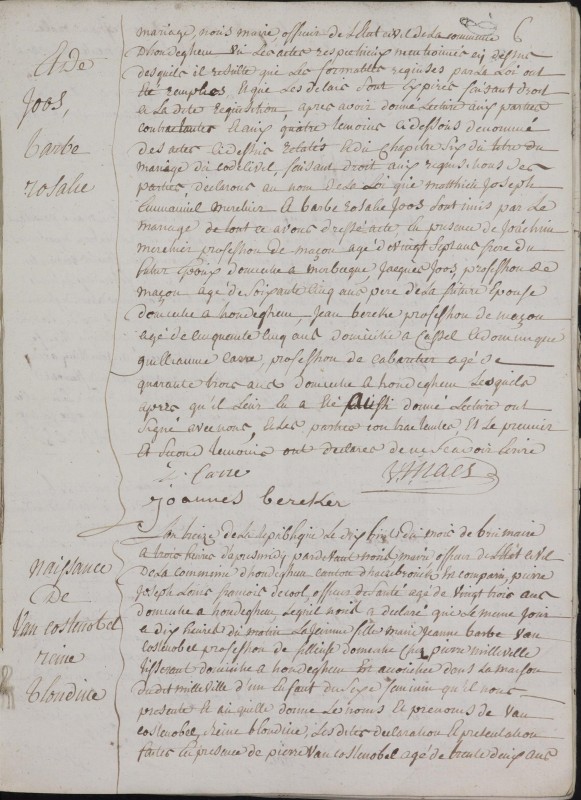 6
Et De
Joos,
barbe
rosalie
mariage, nous maire, officier de l'Etat civil de la commune
D'hondeghem vu Les actes respectivex mentionnés cy dessus
desquels il resulte que Les formalités requises par La Loi ont
été remplies, Et que Les delais sont Expirés faisant droit
a La dite requisition, après avoir donné Lecture aux parties
contractantes Et aux quatre temoins cidessous denommé
des actes cidessus relatés Et du chapitre six du titre du
mariage du code civil, faisant droit aux requisitions des
parties, declarons au nom de La Loi que matthieu Joseph
Emmanuel merchier Et barbe rosalie Joos sont unis par Le
mariage de tout ce avons dressé acte, En presence de Joachim
merchier profession de maçon agé de vingt sept ans frere du
futur Epoux domicilié a morbecque Jacques Joos profession de
maçon agé de soixante cinq ans, pere de la future Epouse
domicilié a hondeghem, Jean bereker profession de maçon
agé de cinquante cinq ans domicilié a Cassel Et dominique
guilleaume Carre, profession de cabaretier agé de
quarante trois ans domicilié a hondeghem Lesquels
après qu'il Leur En a été aussi donné Lecture ont
signé avec nous, Et Les parties contractantes Et Le premier
Et second temoins ont declarés de ne scavoir Ecrire
D. Carre
Joannes bereker
naissance
De
Van costenobel
reine
blondine
L'an treize de la republique Le dix huit du mois de brumaire
a trois heures d'apresmidy pardevant nous maire officier de l'Etat civil
De La commune d'hondeghem canton d'hazebrouck Est comparu, pierre
Joseph Louis francois decool, officier de santé agé de vingt trois ans
domicilié a hondeghem, Lequel nous a declaré que Le meme Jour
a dix heures du matin La femme fille marie Jeanne barbe Van
costenobel profession de fileuse domiciliée chez pierre milleville
tisserant domicilié a hondeghem Est accouchée dans La maison
du dit milleville d'un Enfant du sexe feminin qu'il nous
presente Et auquelle donne Les noms Et prenoms de Van
costenobel, reine blondine, Les dites declaration Et presentation
faites En presence de pierre Van costenobel agé de trente deux ans